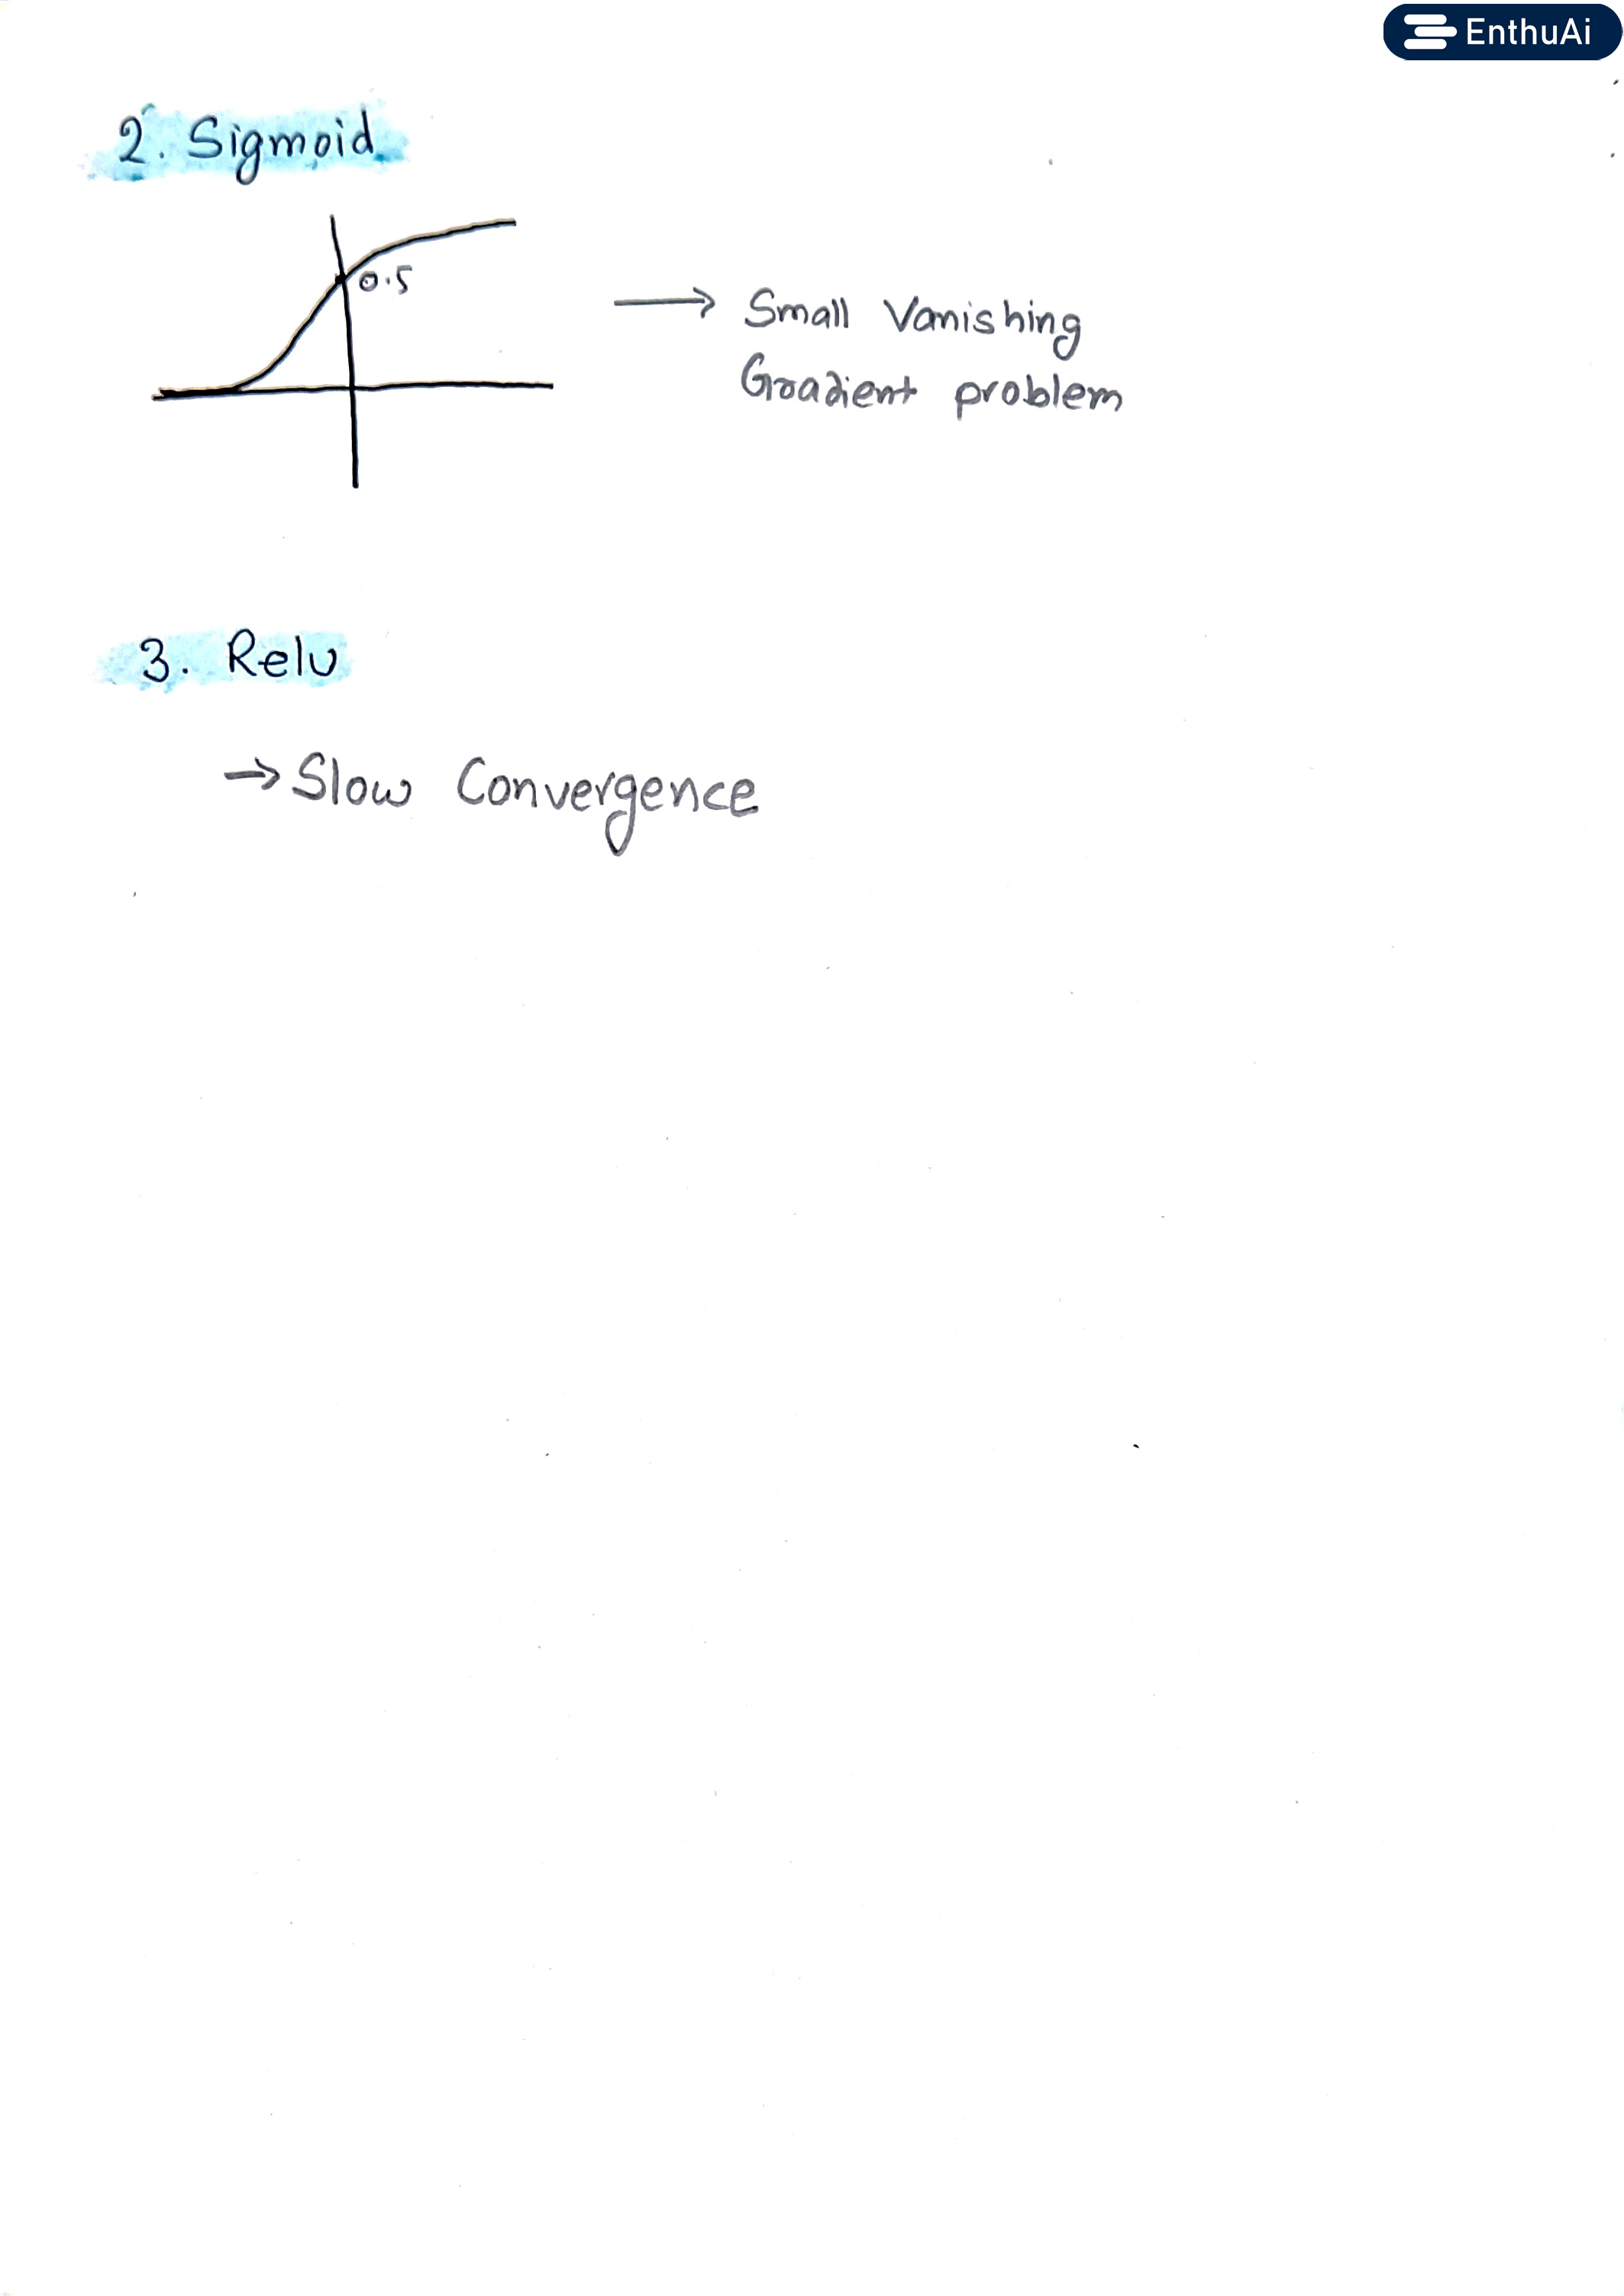 EnthuAi
2. Sigmoid
0.5
→ Small Vanishing
Gradient problem
3. Relu
→ Slow Convergence